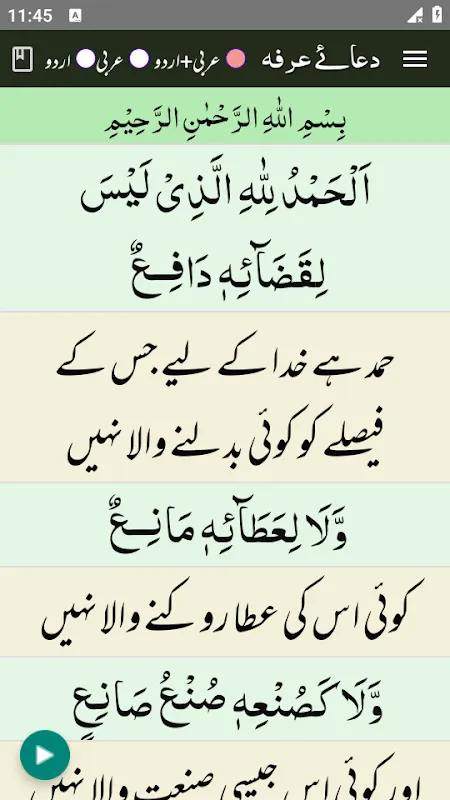 11:45
دعائے عرفہ عربی+اردو عربی اردو
بِسْمِ اللهِ الرَّحْمٰنِ الرَّحِيْمِ
اَلْحَمْدُ لِلّٰهِ الَّذِیْ لَیْسَ
لِقَضَآئِهٖ دَافِعٌ
حمد ہے خدا کے لیے جس کے
فیصلے کو کوئی بدلنے والا نہیں
وَّلَا لِعَطَآئِهٖ مَانِعٌ
کوئی اس کی عطا روکنے والا نہیں
وَّلَا كَصُنْعِهٖ صُنْعُ صَانِعٍ
اور کوئی اس جیسی صنعت والا نہیں